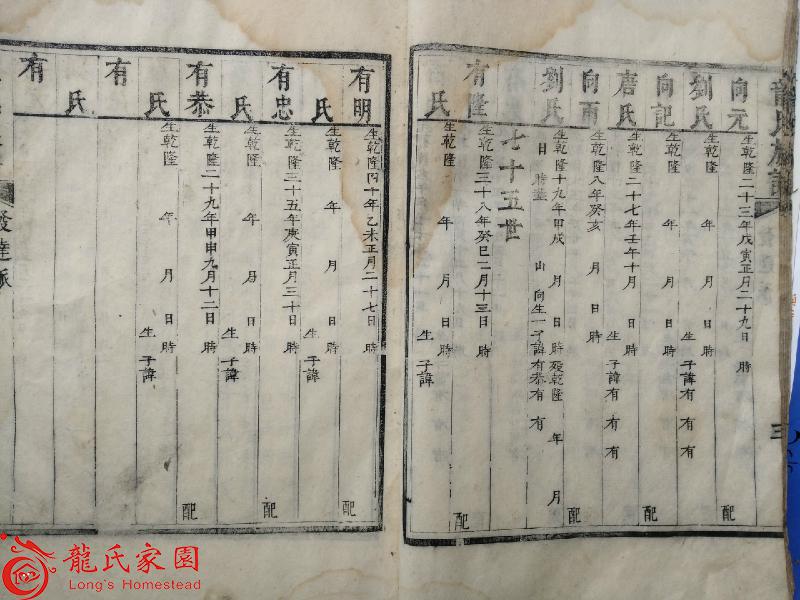 龍氏族譜
三
向元 生乾隆二十三年戊寅正月二十九日 時 配
劉氏 生乾隆 年 月 日 時 生 子諱有 有 有
向記 生乾隆 年 月 日 時 配
唐氏 生乾隆二十七年壬午十月 日 時 生 子諱有 有 有
向雨 生乾隆八年癸亥 月 日 時 配
劉氏 生乾隆十九年甲戌 月 日 時 歿乾隆 年 月
日 時 葬 山 向 生一子諱有恭 有 有
七十五世
有隆 生乾隆三十八年癸巳二月十三日 時 配
氏 生乾隆 年 月 日 時 生 子諱
有明 生乾隆四十年乙未正月二十七日 時 配
氏 生乾隆 年 月 日 時 生 子諱
有忠 生乾隆三十五年庚寅正月三十日 時 配
氏 生乾隆 年 月 日 時 生 子諱
有恭 生乾隆二十九年甲申九月十二日 時 配
氏 生乾隆 年 月 日 時 生 子諱
有
氏
有
發達派
龍氏家園
Long's Homestead